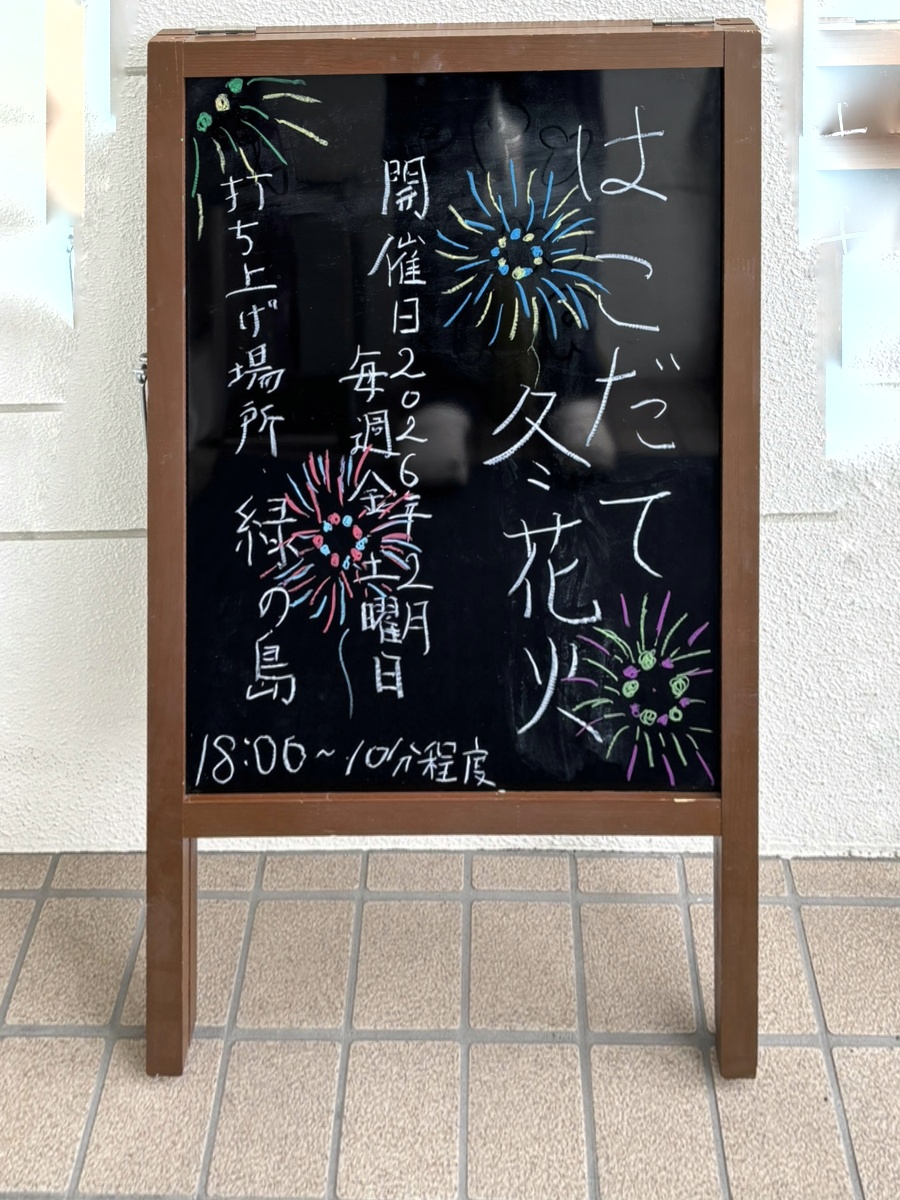 はこだて
冬花火
開催日2026年2月
毎週金土曜日
打ち上げ場所 緑の島
18:00～10分程度